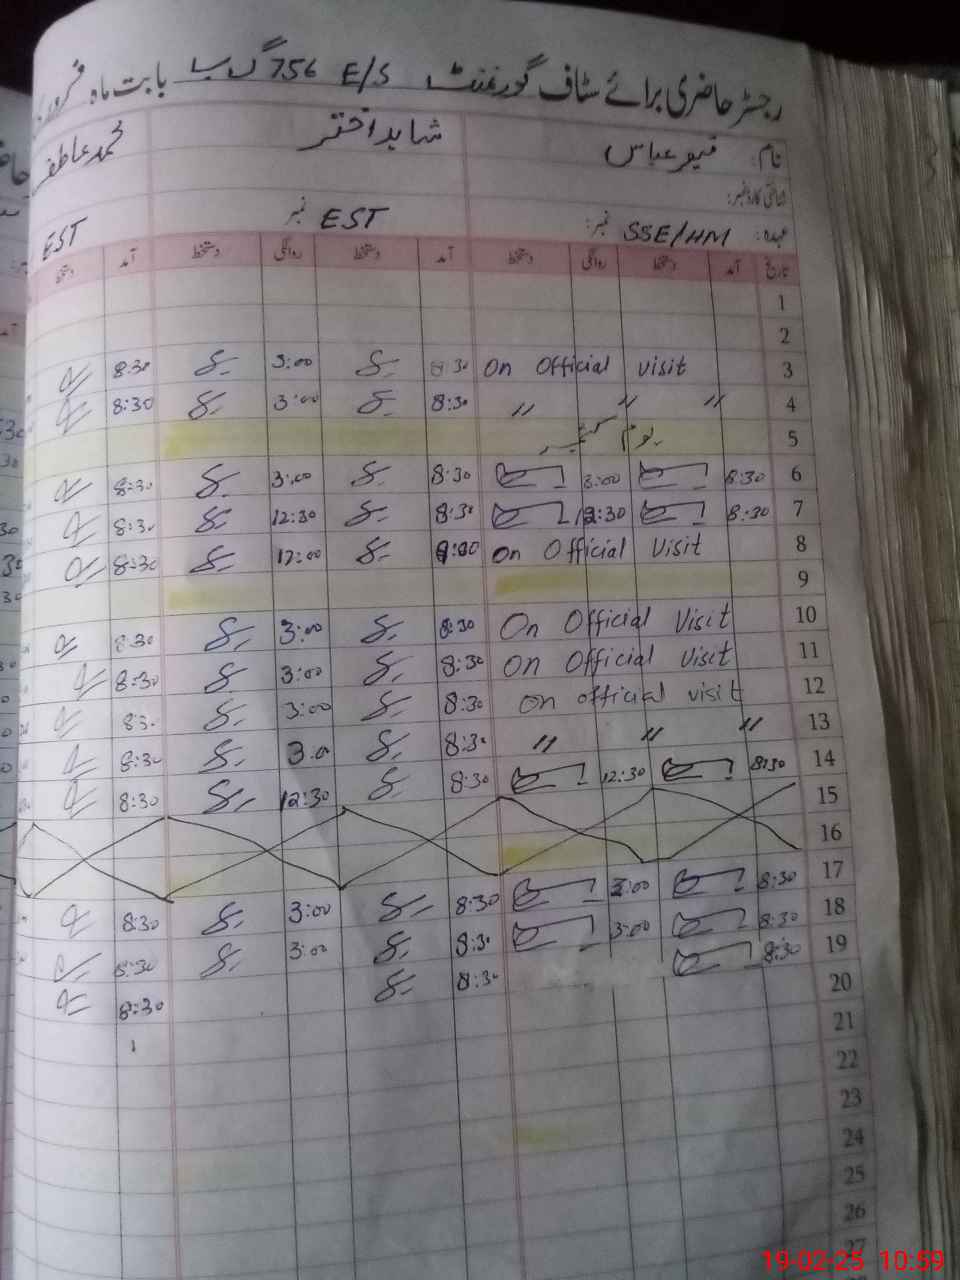 رجسٹر حاضری برائے سٹاف گورنمنٹ E/S 756 گ ب بابت ماہ فرور
نام: قیصر عباس شاہد اختر محمد عاطف
شناختی کارڈ نمبر:
عہدہ: SSE/HM نمبر: EST نمبر EST
تاریخ آمد دستخط روانگی دستخط آمد دستخط روانگی دستخط آمد دستخط
1
2
3 On Official visit 8 30 3:00 8:30
4 〃 〃 〃 8:30 3:00 8:30
5 یوم کشمیر
6 8:30 3:00 8:30 3:00 8:30
7 8:30 12:30 8:30 12:30 8:30
8 On Official Visit 9:00 12:00 8:30
9
10 On Official Visit 8:30 3:00 8:30
11 On Official Visit 8:30 3:00 8:30
12 On official visit 8:30 3:00 8:30
13 〃 〃 〃 8:30 3:0 8:30
14 8:30 12:30 8:30 12:30 8:30
15
16
17 8:30 3:00 8:30 3:00 8:30
18 8:30 3:00 8:30 3:00 8:30
19 8:30 8:30 8:30
20
21
22
23
24
25
26
27
19-02-25 10:59